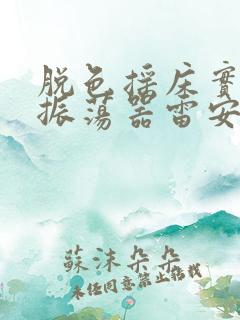 脱色摇床實
振荡器雷安
蘇沫朵朵
未经同意禁止转载